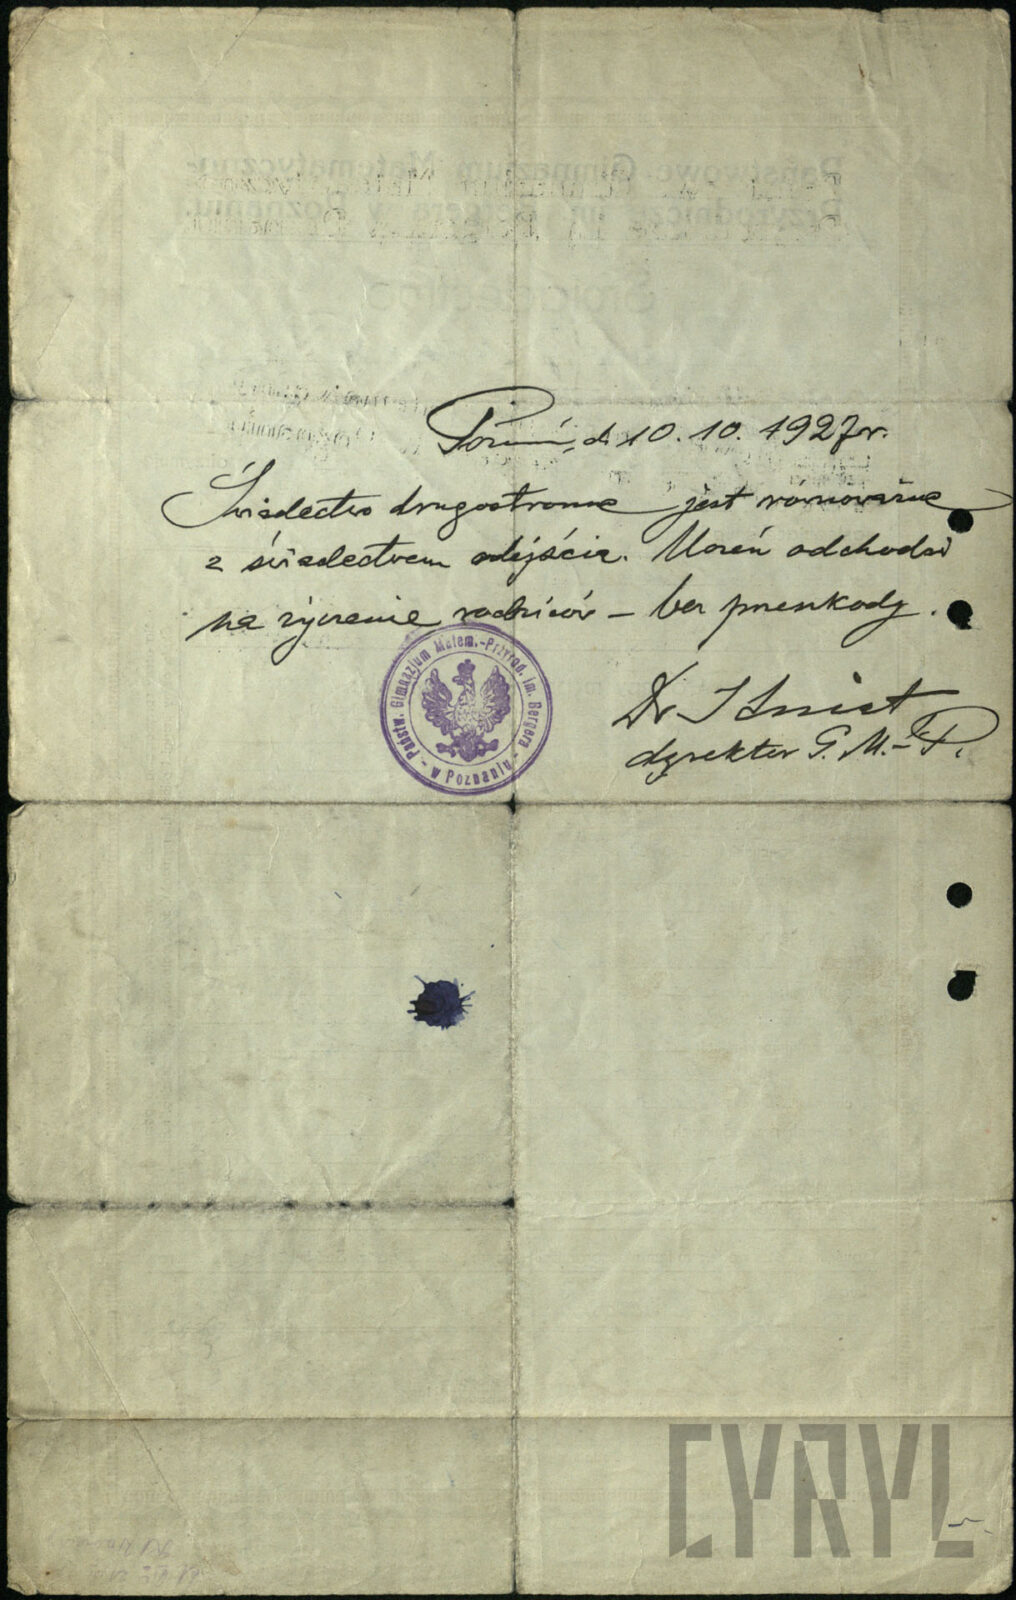 Poznań, d. 10. 10. 1927 r.
Świadectwo drugostronne jest równoważne
z świadectwem odejścia. Uczeń odchodzi
na życzenie rodziców – bez przeszkody.
Państw. Gimnazjum Matem.-Przyrod. im. Bergera
– w Poznaniu –
Dr
dyrektor G. M.-P.
CYRYL